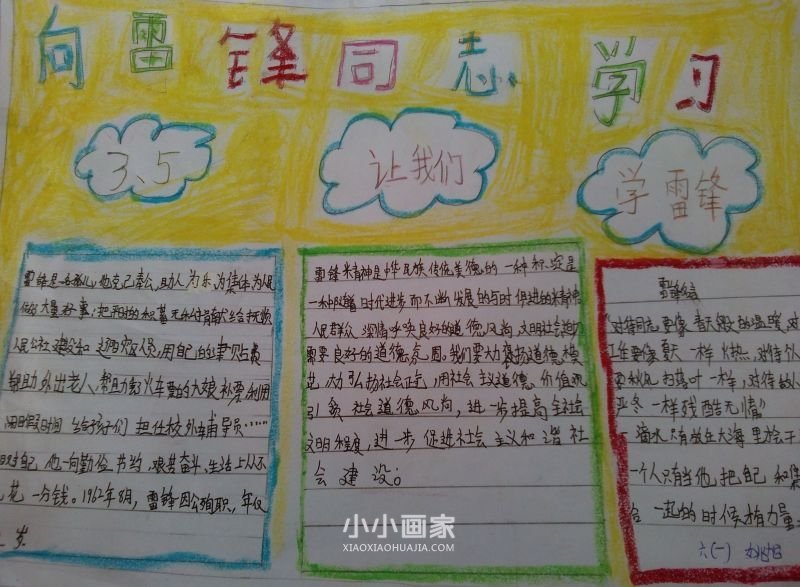 向雷锋同志学习
3、5
让我们
学雷锋
雷锋是孤儿,他克己奉公,助人为乐为集体为人民
做大量好事;把
人民公社建设和辽阳灾区人民,用自己的津贴费
帮助外出老人、帮助 火车 的大娘补票利用
闲日假时间 给孩子们 担任校外辅导员……
对自己 他一向勤俭 节约、艰苦奋斗、生活上从不
花 一分钱。1962年8月,雷锋因公殉职,年仅
岁
雷锋精神是中华民族传统美德的一种积淀是
一种 时代进步而不断发展的与时俱进的精神
人民群众 深情呼唤良好的道德风尚,文明社会
需要良好的道德 。我们要大力 道德模
范 大力弘扬社会正气,用社会主义道德价值观
引领社会道德风尚,进一步提高全社会
文明程度,进一步促进社会主义和谐社
会建设。
雷锋名言
"对待同志要像春天般的温暖,对
工作要像夏天一样火热,对待个
要像秋风扫落叶一样,对待敌人
严冬一样残酷无情"
一滴水只有放在大海里
一个人只有当他把自己和
合一起的时候 有力量
六(一)
小小画家
XIAOXIAOHUAJIA.COM